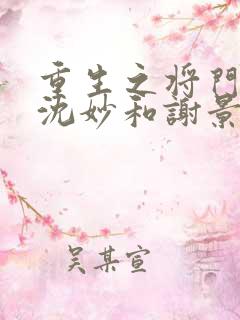 重生之将門
沈妙和謝景
吴某宣